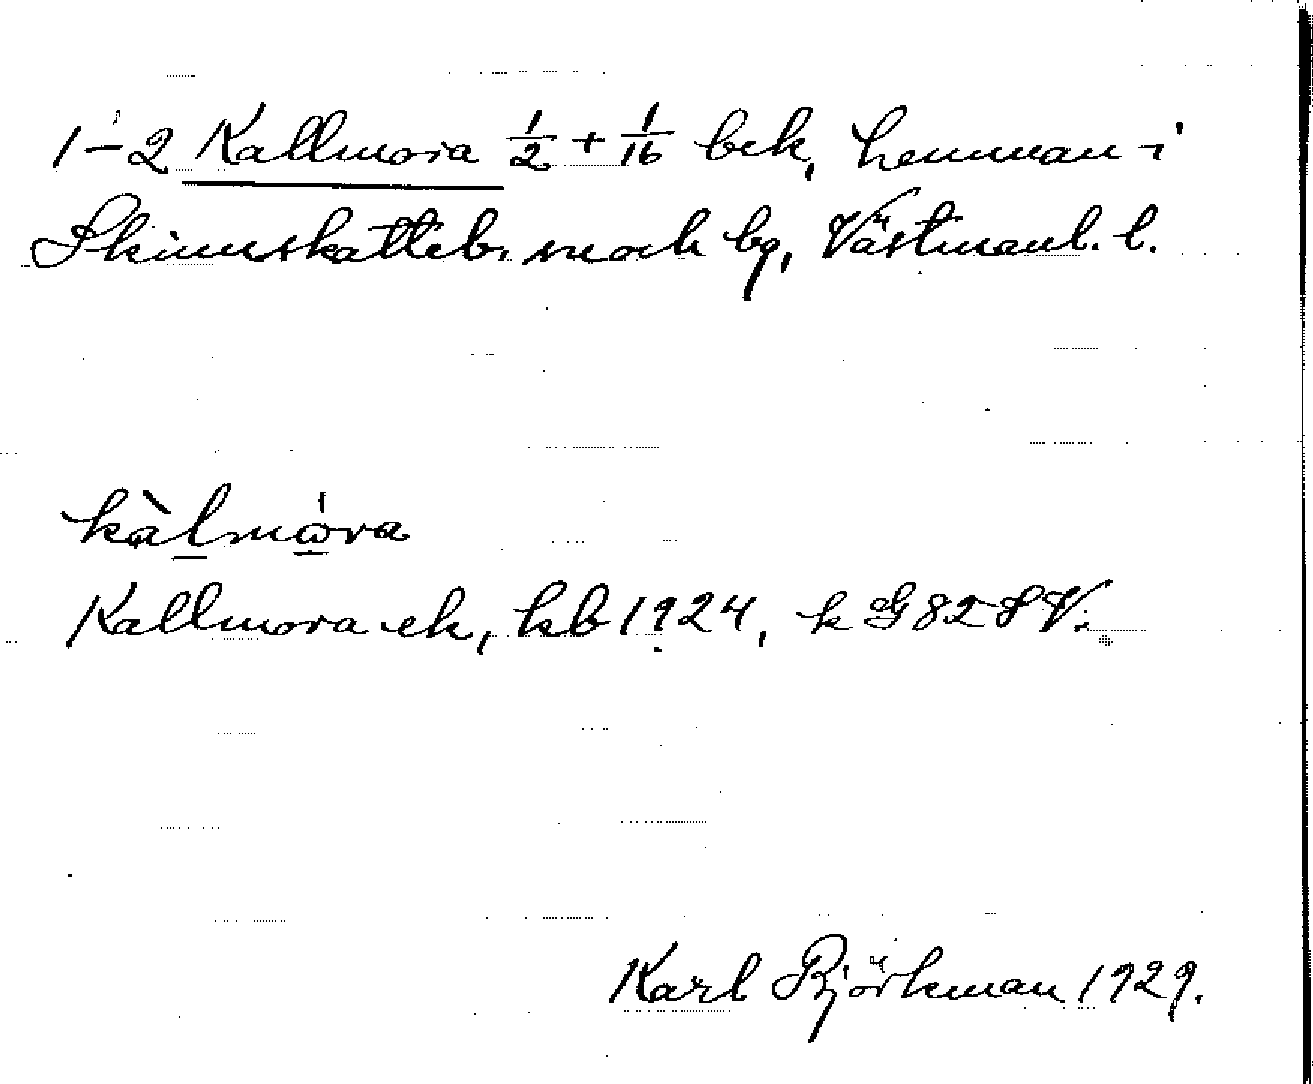 1–2 Kallmora 1/2 + 1/16 brk, hemman i
Skinnskattebr. sn och bg, Västmanl. l.
kàlmóra
Kallmora ek, kb 1924, k G 82 SV.
Karl Björkman 1929.